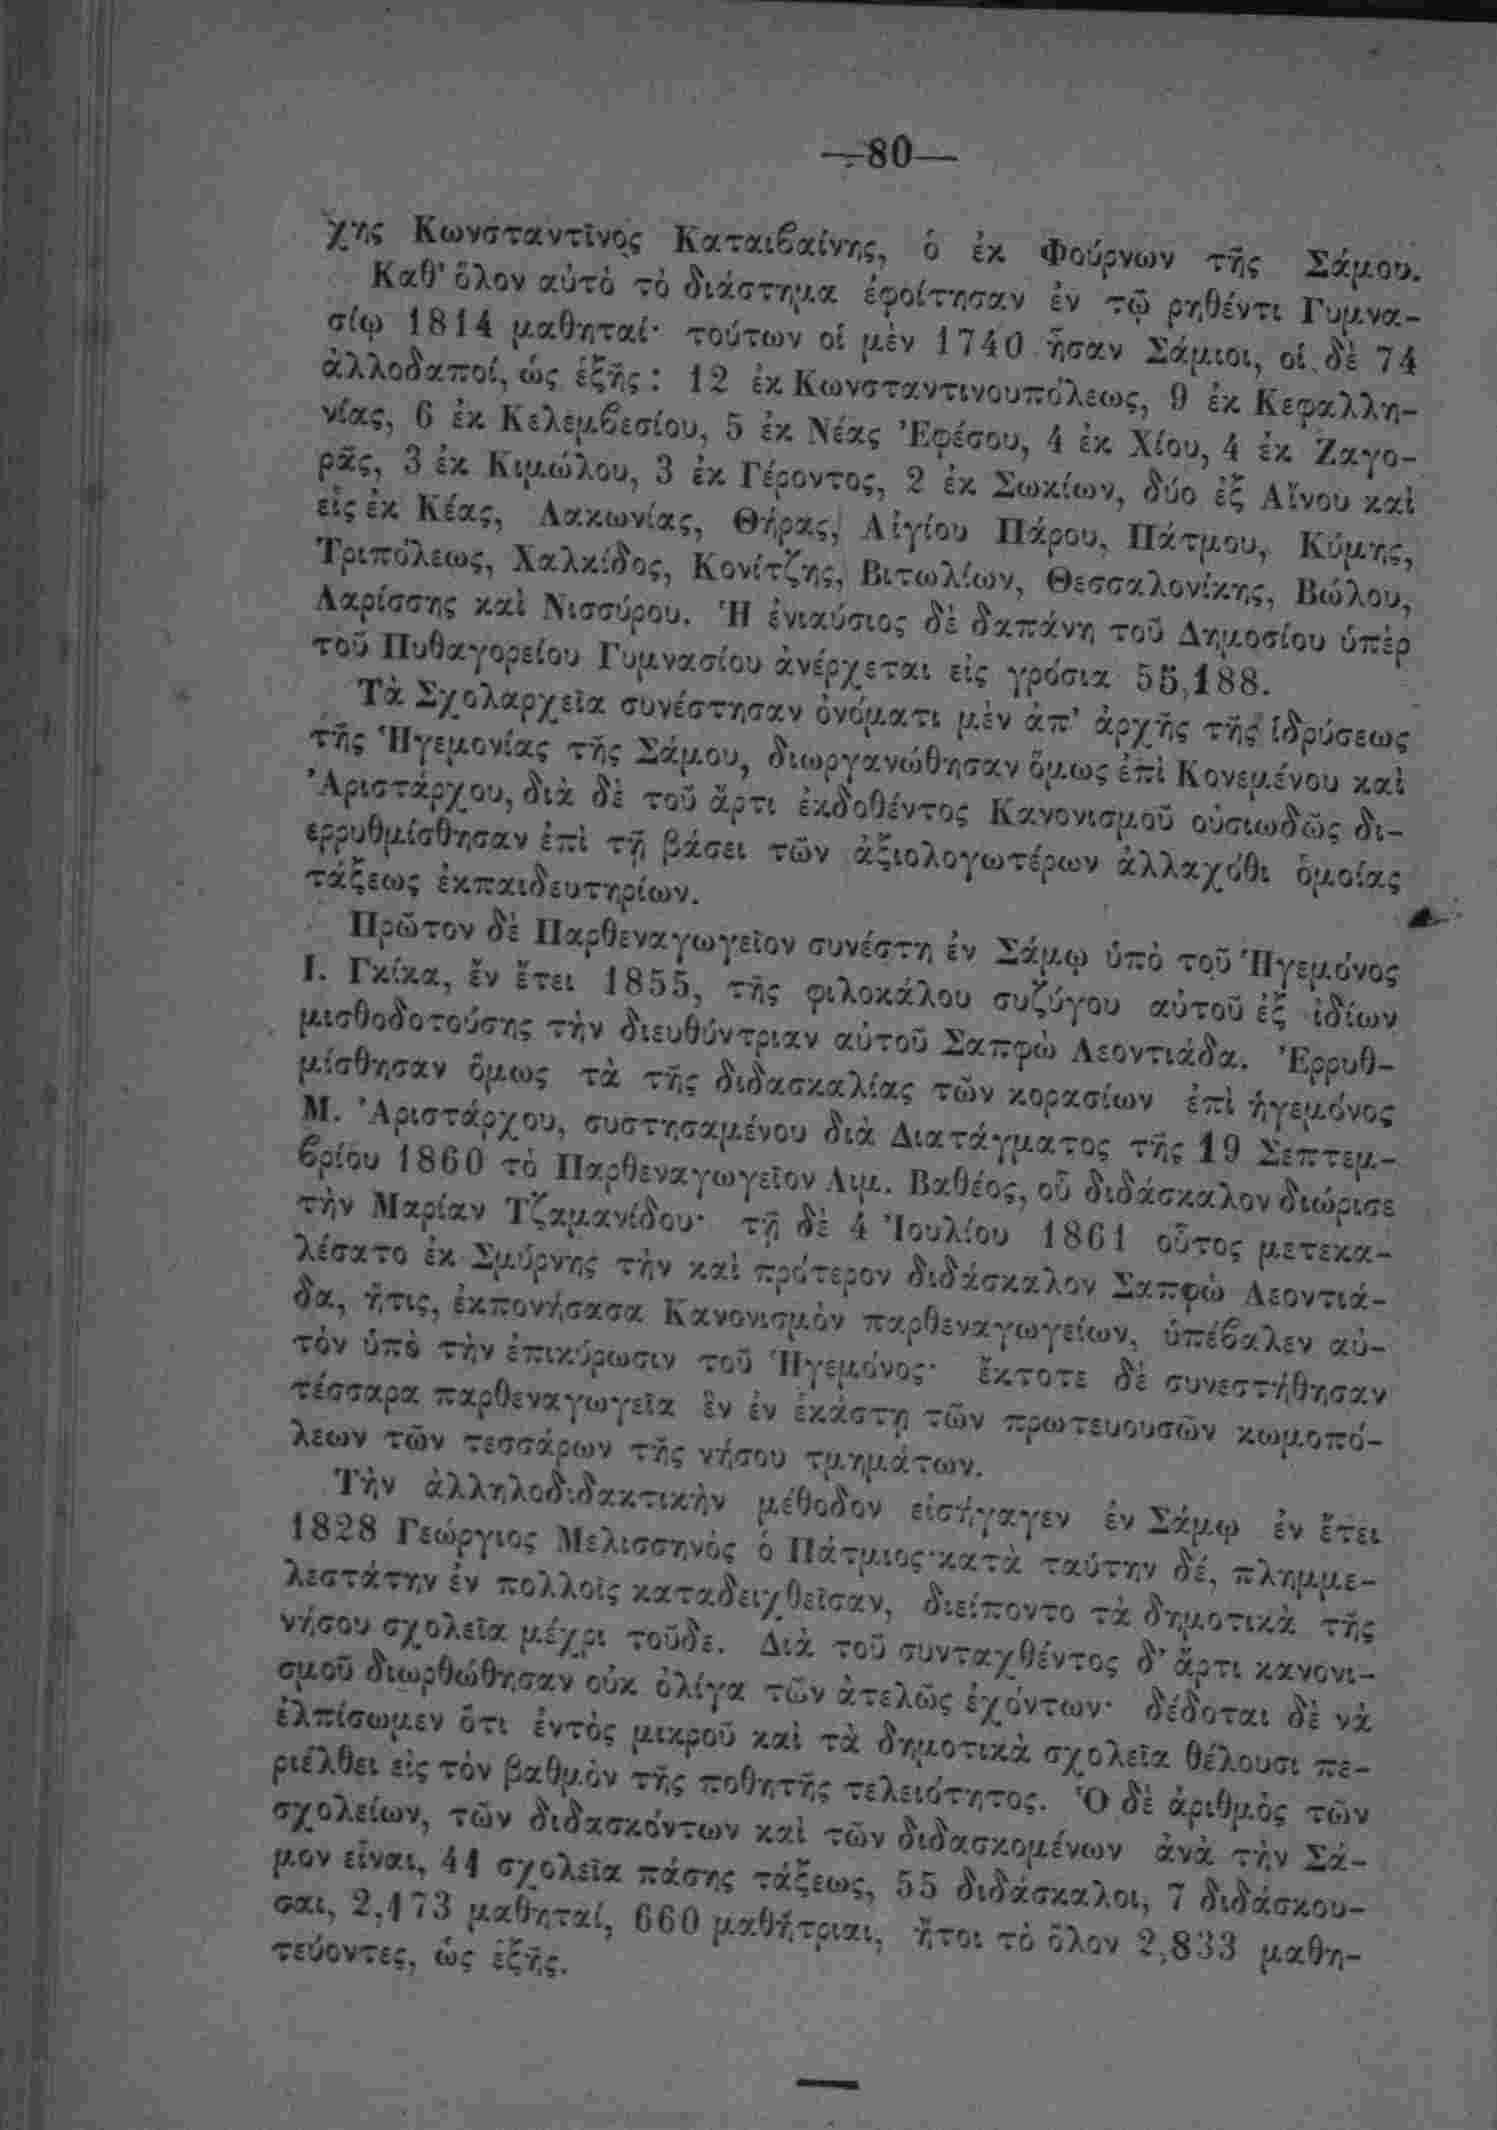 —80—
χης Κωνσταντῖνος Καταιβαίνης, ὁ ἐκ Φούρνων τῆς Σάμου.
Καθ' ὅλον αὐτὸ τὸ διάστημα ἐφοίτησαν ἐν τῷ ρηθέντι Γυμνα-
σίῳ 1814 μαθηταί· τούτων οἱ μὲν 1740 ἦσαν Σάμιοι, οἱ δὲ 74
ἀλλοδαποί, ὡς ἑξῆς: 12 ἐκ Κωνσταντινουπόλεως, 9 ἐκ Κεφαλλη-
νίας, 6 ἐκ Κελεμβεσίου, 5 ἐκ Νέας Ἐφέσου, 4 ἐκ Χίου, 4 ἐκ Ζαγο-
ρᾶς, 3 ἐκ Κιμώλου, 3 ἐκ Γέροντος, 2 ἐκ Σωκίων, δύο ἐξ Αἴνου καὶ
εἷς ἐκ Κέας, Λακωνίας, Θήρας, Αἰγίου Πάρου, Πάτμου, Κύμης,
Τριπόλεως, Χαλκίδος, Κονίτζης, Βιτωλίων, Θεσσαλονίκης, Βώλου,
Λαρίσσης καὶ Νισσύρου. Ἡ ἐνιαύσιος δὲ δαπάνη τοῦ Δημοσίου ὑπὲρ
τοῦ Πυθαγορείου Γυμνασίου ἀνέρχεται εἰς γρόσια 55,188.
Τὰ Σχολαρχεῖα συνέστησαν ὀνόματι μὲν ἀπ' ἀρχῆς τῆς ἱδρύσεως
τῆς Ἡγεμονίας τῆς Σάμου, διωργανώθησαν ὅμως ἐπὶ Κονεμένου καὶ
Ἀριστάρχου, διὰ δὲ τοῦ ἄρτι ἐκδοθέντος Κανονισμοῦ οὐσιωδῶς δι-
ερρυθμίσθησαν ἐπὶ τῇ βάσει τῶν ἀξιολογωτέρων ἀλλαχόθι ὁμοίας
τάξεως ἐκπαιδευτηρίων.
Πρῶτον δὲ Παρθεναγωγεῖον συνέστη ἐν Σάμῳ ὑπὸ τοῦ Ἡγεμόνος
Ι. Γκίκα, ἔν ἔτει 1855, τῆς φιλοκάλου συζύγου αὐτοῦ ἐξ ἰδίων
μισθοδοτούσης τὴν διευθύντριαν αὐτοῦ Σαπφὼ Λεοντιάδα. Ἐρρυθ-
μίσθησαν ὅμως τὰ τῆς διδασκαλίας τῶν κορασίων ἐπὶ ἡγεμόνος
Μ. Ἀριστάρχου, συστησαμένου διὰ Διατάγματος τῆς 19 Σεπτεμ-
βρίου 1860 τὸ Παρθεναγωγεῖον Λιμ. Βαθέος, οὗ διδάσκαλον διώρισε
τὴν Μαρίαν Τζαμανίδου· τῇ δὲ 4 Ἰουλίου 1861 οὗτος μετεκα-
λέσατο ἐκ Σμύρνης τὴν καὶ πρότερον διδάσκαλον Σαπφὼ Λεοντιά-
δα, ἥτις, ἐκπονήσασα Κανονισμὸν παρθεναγωγείων, ὑπέβαλεν αὐ-
τὸν ὑπὸ τὴν ἐπικύρωσιν τοῦ Ἡγεμόνος· ἔκτοτε δὲ συνεστήθησαν
τέσσαρα παρθεναγωγεῖα ἓν ἐν ἑκάστῃ τῶν πρωτευουσῶν κωμοπό-
λεων τῶν τεσσάρων τῆς νήσου τμημάτων.
Τὴν ἀλληλοδιδακτικὴν μέθοδον εἰσήγαγεν ἐν Σάμῳ ἐν ἔτει
1828 Γεώργιος Μελισσηνὸς ὁ Πάτμιος·κατὰ ταύτην δέ, πλημμε-
λεστάτην ἐν πολλοῖς καταδειχθεῖσαν, διείποντο τὰ δημοτικὰ τῆς
νήσου σχολεῖα μέχρι τοῦδε. Διὰ τοῦ συνταχθέντος δ' ἄρτι κανονι-
σμοῦ διωρθώθησαν οὐκ ὀλίγα τῶν ἀτελῶς ἐχόντων· δέδοται δὲ νὰ
ἐλπίσωμεν ὅτι ἐντὸς μικροῦ καὶ τὰ δημοτικὰ σχολεῖα θέλουσι πε-
ριέλθει εἰς τὸν βαθμὸν τῆς ποθητῆς τελειότητος. Ὁ δὲ ἀριθμὸς τῶν
σχολείων, τῶν διδασκόντων καὶ τῶν διδασκομένων ἀνὰ τὴν Σά-
μον εἶναι, 44 σχολεῖα πάσης τάξεως, 55 διδάσκαλοι, 7 διδάσκου-
σαι, 2,173 μαθηταί, 660 μαθήτριαι, ἤτοι τὸ ὅλον 2,833 μαθη-
τεύοντες, ὡς ἑξῆς.